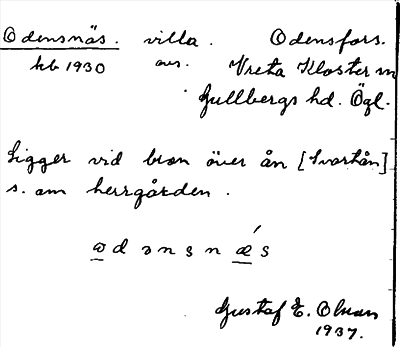 Odensnäs. villa. Odensfors.
kb 1930 avs. Vreta Kloster sn
Gullbergs hd. Ögl.
Ligger vid bron över ån [Svartån]
s. om herrgården.
ɷdɘnsnǽs
Gustaf E. Olsson
1937.